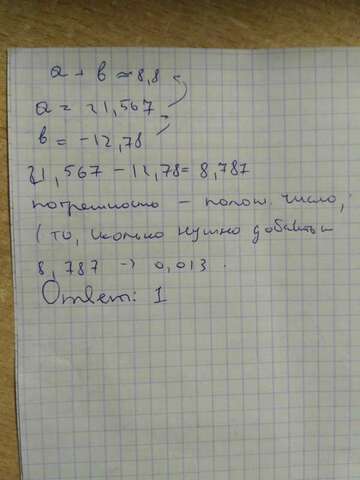 a + b ≈ 8,8
a = 21,567
b = -12,78
21,567 - 12,78 = 8,787
погрешность - полож. число,
(то, сколько нужно добавить
8,787 → 0,013.
Ответ: 1